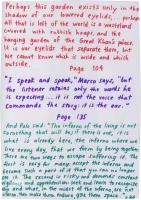 Perhaps this garden exists only in the
shadow of our lowered eyelids, perhaps
all that is left of the world is a wasteland
covered with rubbish heaps, and the
hanging garden of the Great Khan's palace.
It is our eyelids that separate them, but
we cannot know which is inside and which
outside.
Page 104
"I speak and speak," Marco says, "but
the listener retains only the words he
is expecting... it is not the voice that
commands the story: it is the ear."
Page 135
And Polo said: "The inferno of the living is not
something that will be; if there is one, it is
what is already here, the inferno where we
live every day, that we form by being together.
There are two ways to escape suffering it. The
first is easy for many: accept the inferno and
become such a part of it that you can no longer
see it. The second is risky and demands constant
vigilance and apprehension: seek and learn to recognize
who and what, in the midst of the inferno, are not
inferno, then make them endure, give them space."